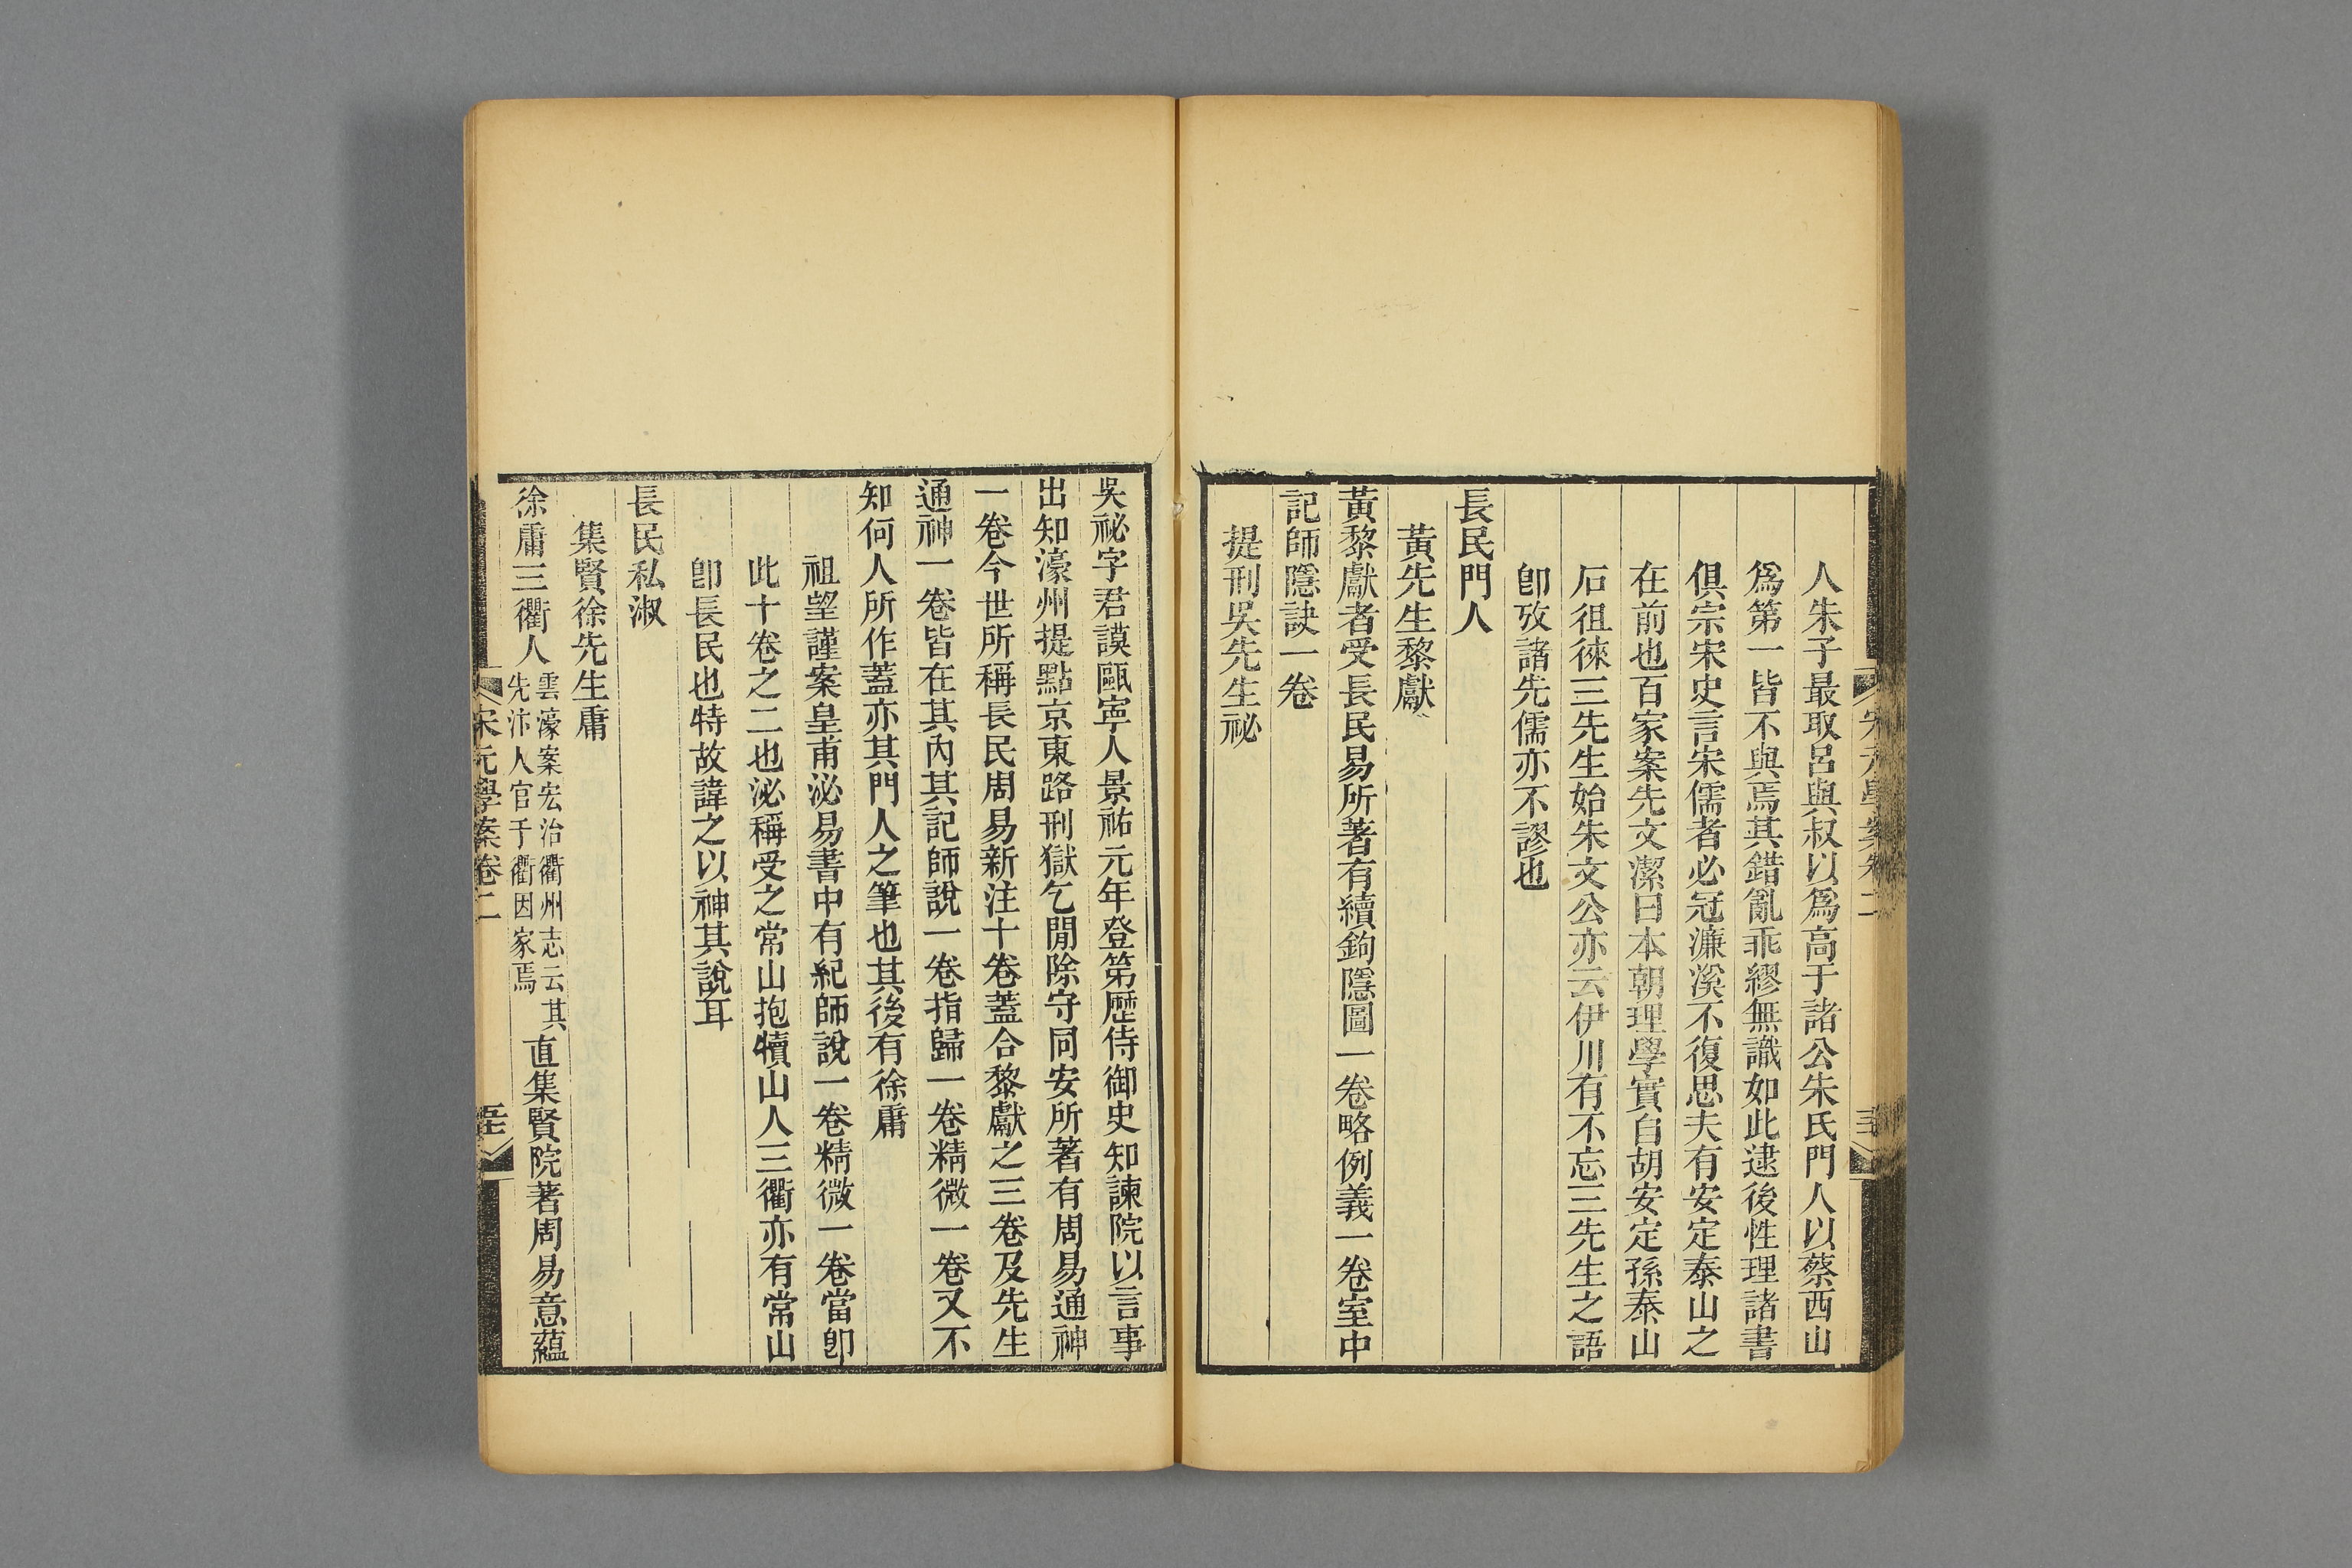 人朱子最取呂與叔以爲高于諸公朱氏門人以蔡西山
爲第一皆不與焉其錯亂乖繆無識如此逮後性理諸書
俱宗宋史言宋儒者必冠濂溪不復思夫有安定泰山之
在前也百家案先文潔曰本朝理學實自胡安定孫泰山
石徂徠三先生始朱文公亦云伊川有不忘三先生之語
卽攷諸先儒亦不謬也
長民門人
黃先生黎獻
黃黎獻者受長民易所著有續鉤隱圖一卷略例義一卷室中
記師隱訣一卷
提刑吳先生祕
吳祕字君謨甌寧人景祐元年登第歷侍御史知諫院以言事
出知濠州提點京東路刑獄乞閒除守同安所著有周易通神
一卷今世所稱長民周易新注十卷蓋合黎獻之三卷及先生
通神一卷皆在其內其記師說一卷指歸一卷精微一卷又不
知何人所作蓋亦其門人之筆也其後有徐庸
祖望謹案皇甫泌易書中有紀師說一卷精微一卷當卽
此十卷之二也泌稱受之常山抱犢山人三衢亦有常山
卽長民也特故諱之以神其說耳
長民私淑
集賢徐先生庸
徐庸三衢人雲濠案宏治衢州志云其先汴人官于衢因家焉直集賢院著周易意蘊
宋元學案卷二